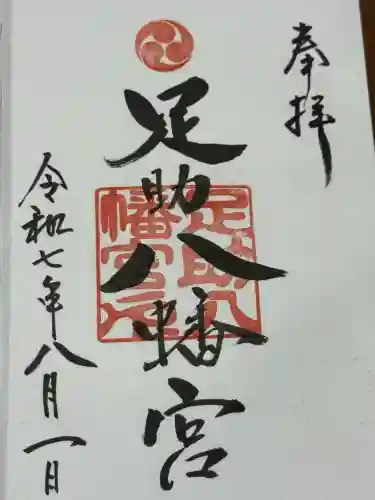 奉拝
足助八幡宮
足助八
幡宮印
令和七年八月一日